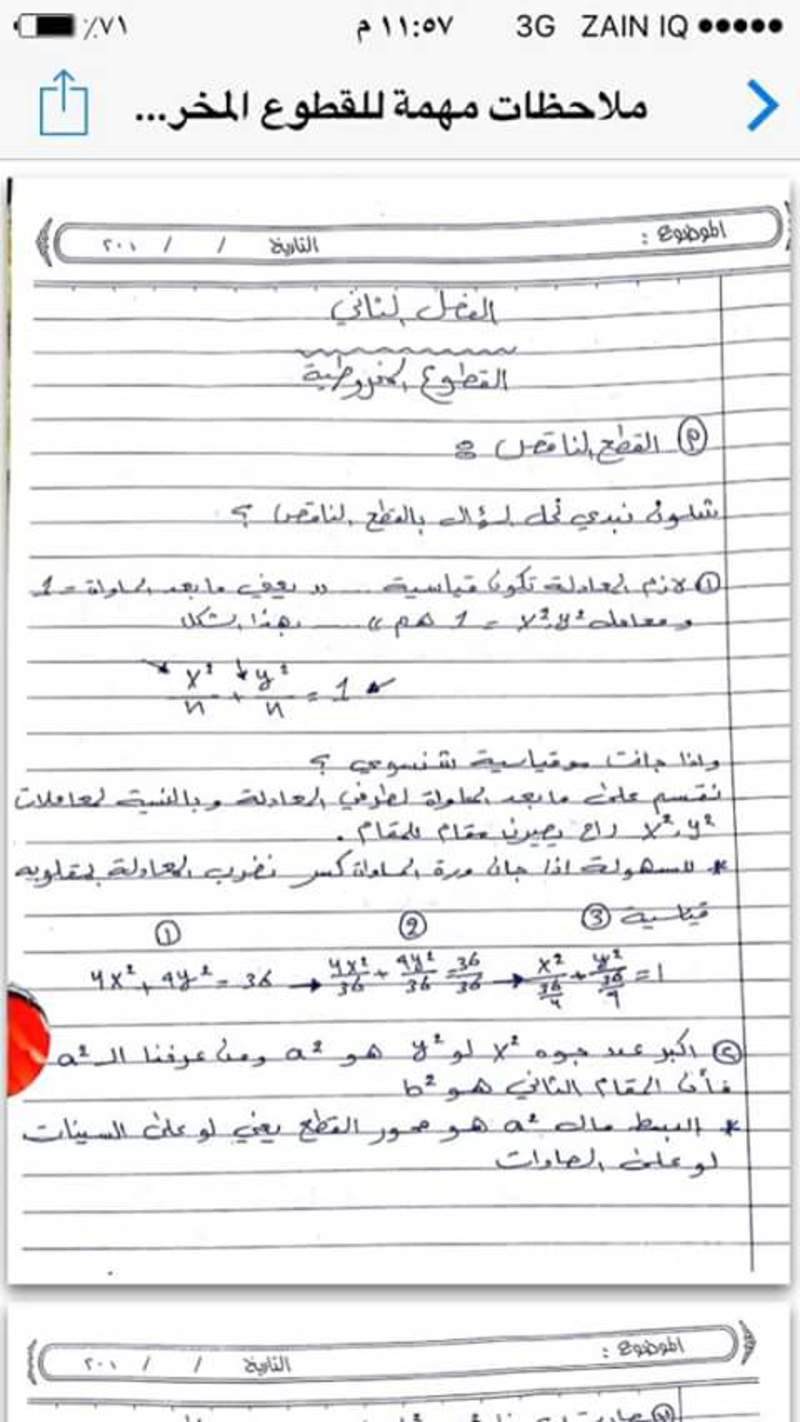 ٪٧١ ١١:٥٧ م 3G ZAIN IQ
ملاحظات مهمة للقطوع المخر...
الموضوع : التاريخ / / ٢٠١
الفصل الثاني
القطوع المخروطية
م القطع الناقص :
شلون نبدي نحل السؤال بالقطع الناقص ؟
① لازم المعادلة تكون قياسية .... (( يعني ما بعد المساواة = 1
ومعامل x², y² = 1 هم )) .... بهذا الشكل
x²/n + y²/n = 1
واذا جانت مو قياسية شنسوي ؟
نقسم على ما بعد المساواة لطرفي المعادلة وبالنسبة لمعاملات
x², y² راح يصيرن مقام للمقام .
* للسهولة اذا جان ورة المساواة كسر نضرب المعادلة بمقلوبه
① ② ③ قياسية
4x² + 9y² = 36 → 4x²/36 + 9y²/36 = 36/36 → x²/(36/4) + y²/(36/9) = 1
② اكبر عدد جوه x² لو y² هو a² ومن عرفنا الـ a²
فأن المقام الثاني هو b²
* البسط مال a² هو محور القطع يعني لو على السينات
لو على الصادات
الموضوع : التاريخ / / ٢٠١